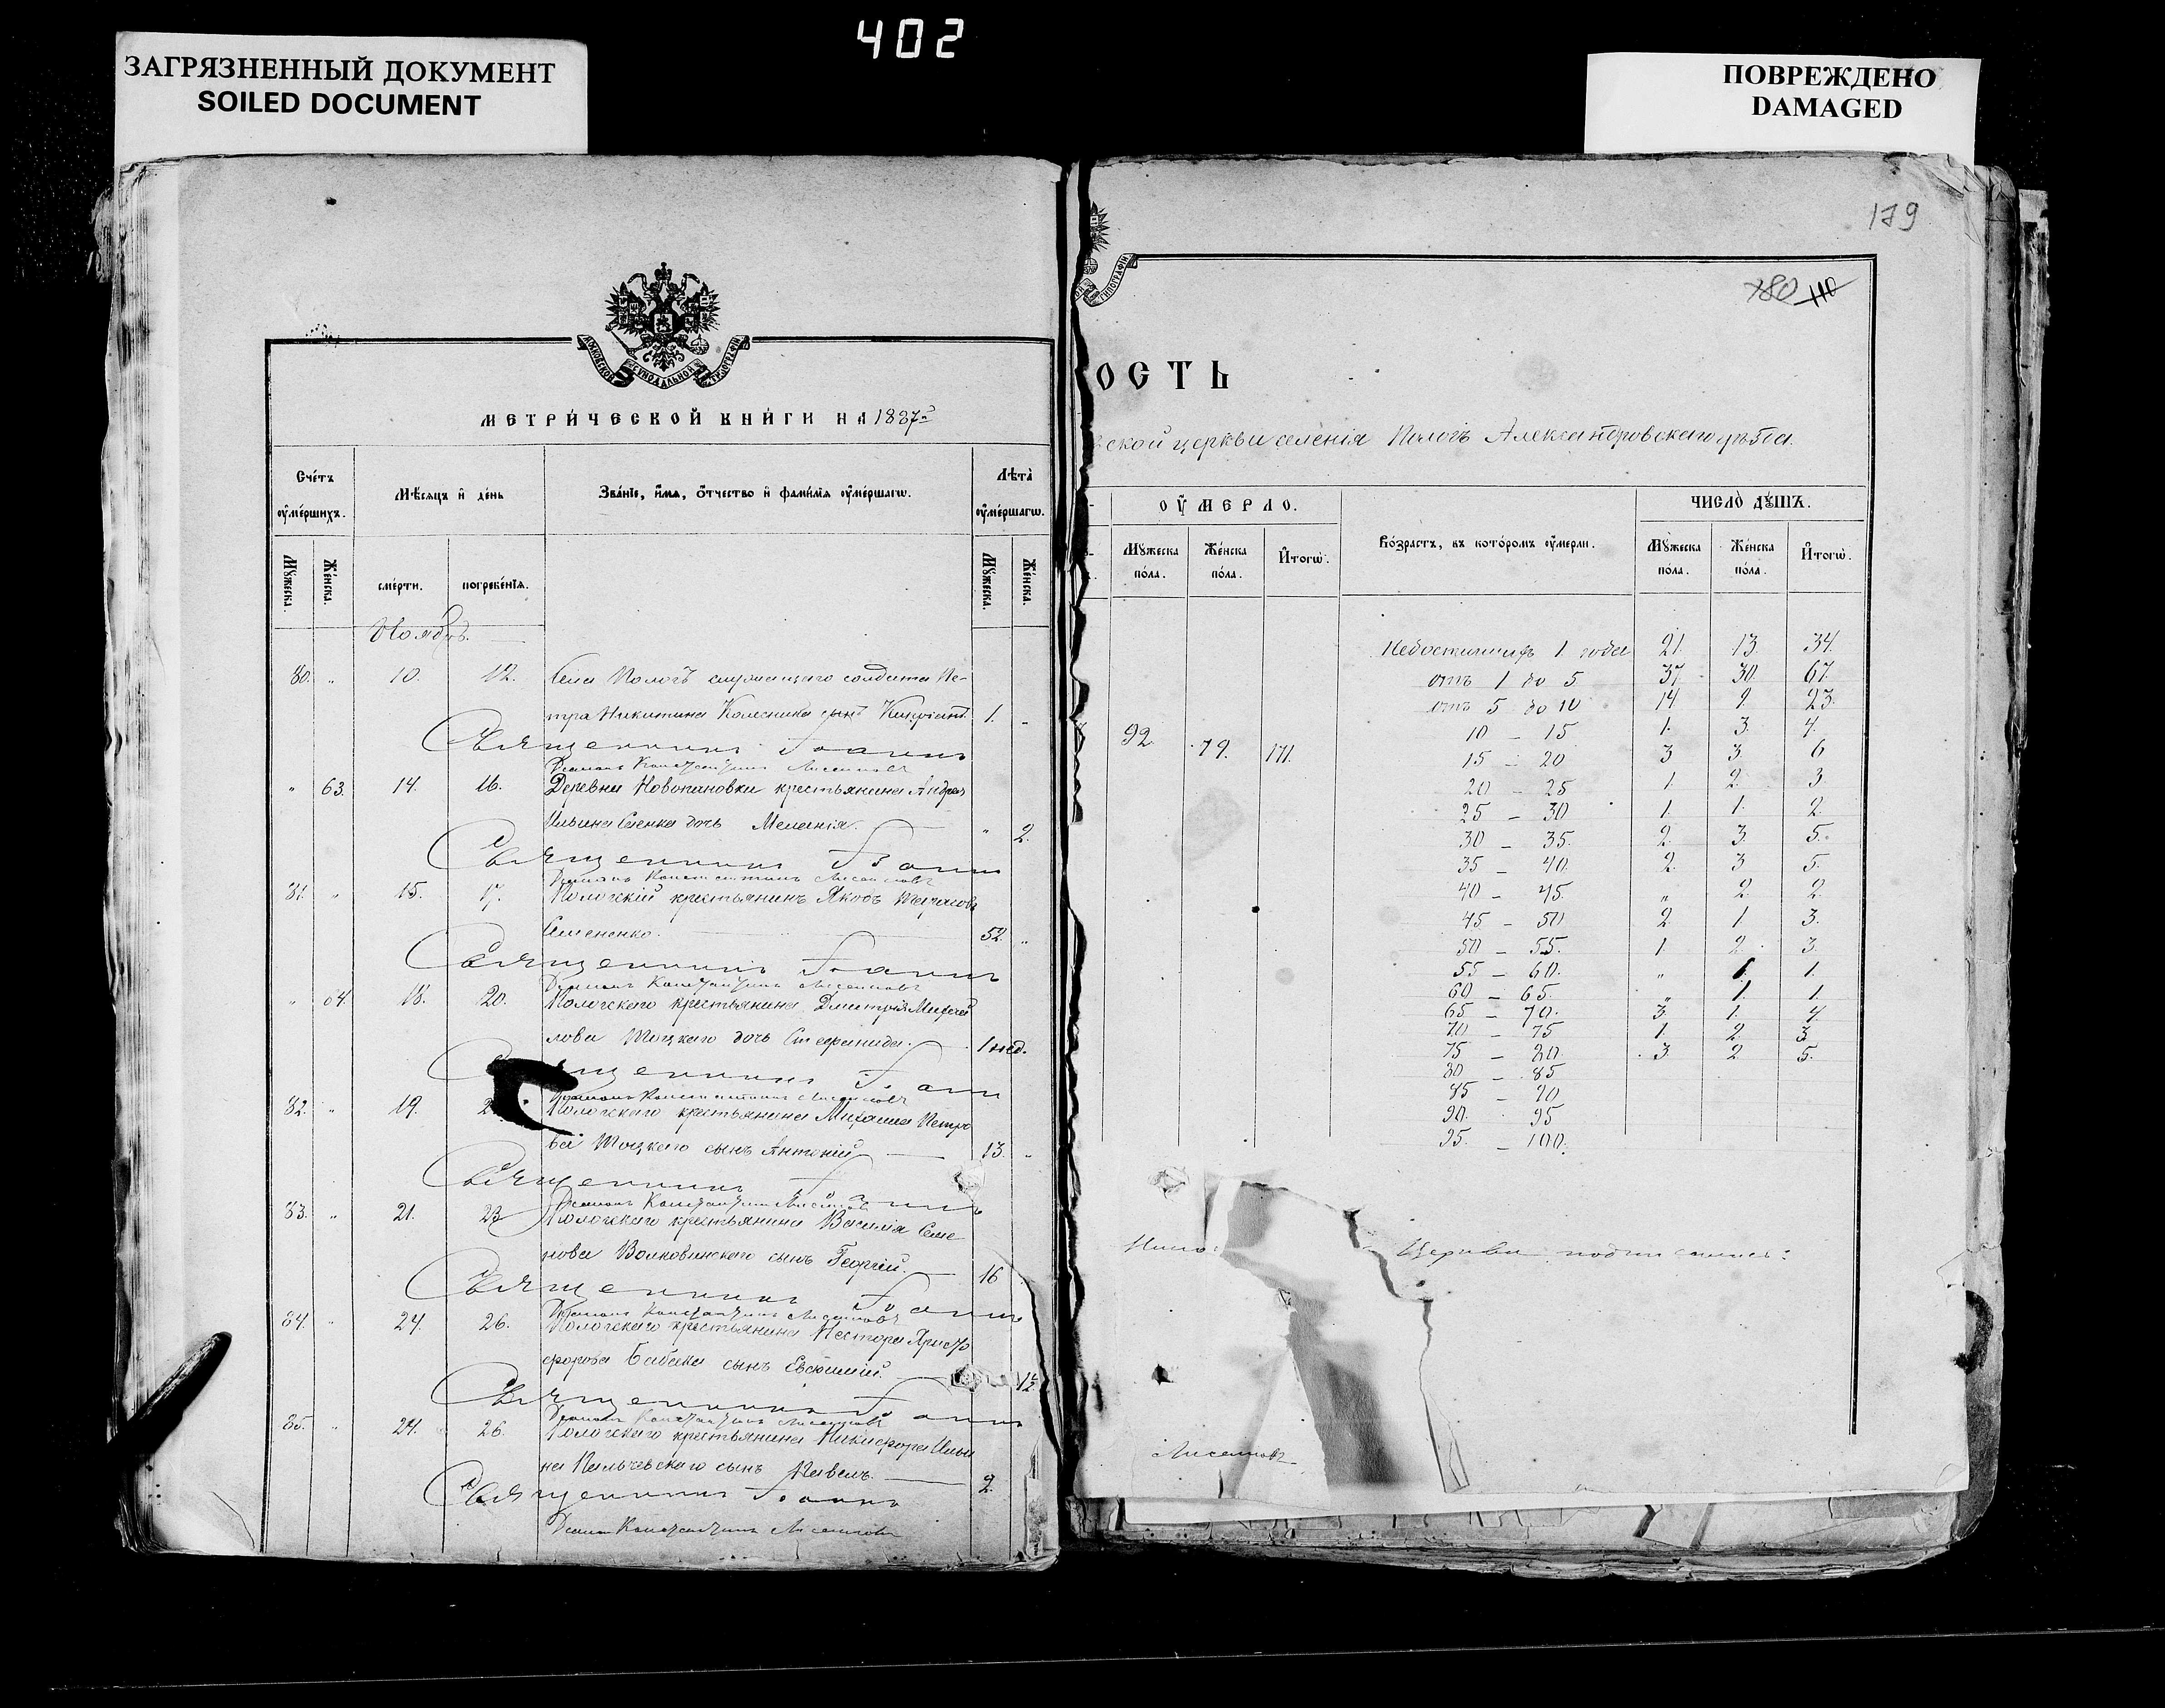 402
ЗАГРЯЗНЕННЫЙ ДОКУМЕНТ
SOILED DOCUMENT
ПОВРЕЖДЕНО
DAMAGED
МОСКОВСКОЙ СѴНОДАЛЬНОЙ ТИПОГРАФІИ
МЕТРИ́ЧЕСКОЙ КНИ́ГИ НА 1887 г
Сче́тъ ᲂу҆ме́ршихъ.
Мѣ́сяцъ и҆ де́нь
Зва́нїе, и҆́мѧ, ѻ҆́тчество и҆ фами́лїѧ ᲂу҆ме́ршагѡ.
Лѣта̀ ᲂу҆ме́ршагѡ.
Мꙋ́жеска.
Же́нска.
сме́рти.
погребе́нїѧ.
Мꙋ́жеска.
Же́нска.
Ноябрь.
80. " 10. 12. Села Пологъ служащаго солдата Пе-
тра Никитина Колесника сынъ Кипріанъ. 1. "
Священникъ Іоаннъ
Діаконъ Константинъ Лисенковъ
" 63. 14. 16. Деревни Новопановки крестьянина Андрея
Ильина Саенка дочь Меланія. " 2.
Священникъ Іоаннъ
Діаконъ Константинъ Лисенковъ
81. " 15. 17. Пологскій крестьянинъ Яковъ Тарасовъ
Семененко. 52. "
Священникъ Іоаннъ
Діаконъ Константинъ Лисенковъ
" 64. 18. 20. Пологскаго крестьянина Дмитрія Михай
лова Тоцкаго дочь Стефанида. 1 нед.
Священникъ Іоаннъ
Діаконъ Константинъ Лисенковъ
82. " 19. Пологскаго крестьянина Михаила Петро
ва Тоцкаго сынъ Антоній 13. "
Священникъ Іоаннъ
Діаконъ Константинъ Лисенковъ
83. " 21. 23 Пологскаго крестьянина Василія Семе
нова Волковинскаго сынъ Георгій. 16
Священникъ Іоаннъ
Діаконъ Константинъ Лисенковъ
84. " 24. 26. Пологскаго крестьянина Нестора Христо
форова Бабака сынъ Евсюмій.
Священникъ Іоаннъ
Діаконъ Константинъ Лисенковъ
85. " 24. 26. Пологскаго крестьянина Никифора Ильи
на Пальчевскаго сынъ Павелъ. 2.
Священникъ Іоаннъ
Діаконъ Константинъ Лисенковъ
179
180 110
ТИПОГРАФІИ
ОСТЬ
ской церкви селенія Пологъ Александровскаго уѣзда.
Оу҆МЕРЛО.
ЧИСЛО̀ ДꙊ́ШЪ.
Мꙋ́жеска по́ла.
Же́нска по́ла.
И҆тогѡ̀.
Во́зрастъ, въ кото́ромъ ᲂу҆́мерли.
Мꙋ́жеска по́ла.
Же́нска по́ла.
И҆тогѡ̀.
92. 79. 171.
Недостигшихъ 1 года 21. 13. 34.
отъ 1 до 5 37. 30. 67.
отъ 5 до 10 14 9. 23.
10 — 15 1. 3. 4.
15 — 20 3 3. 6
20 — 25 1. 2. 3
25 — 30 1. 1. 2.
30 — 35. 2. 3. 5.
35 — 40. 2. 3 5.
40 — 45. " 2 2.
45 — 50 2. 1 3.
50 — 55. 1. 2. 3.
55 — 60. " 1. 1.
60 — 65. " 1. 1.
65 — 70. 3. 1. 4.
70 — 75 1. 2. 3.
75 — 80 3. 2 5.
80 — 85
85 — 90
90. 95
95. — 100.
Церкви подписались:
Лисенковъ